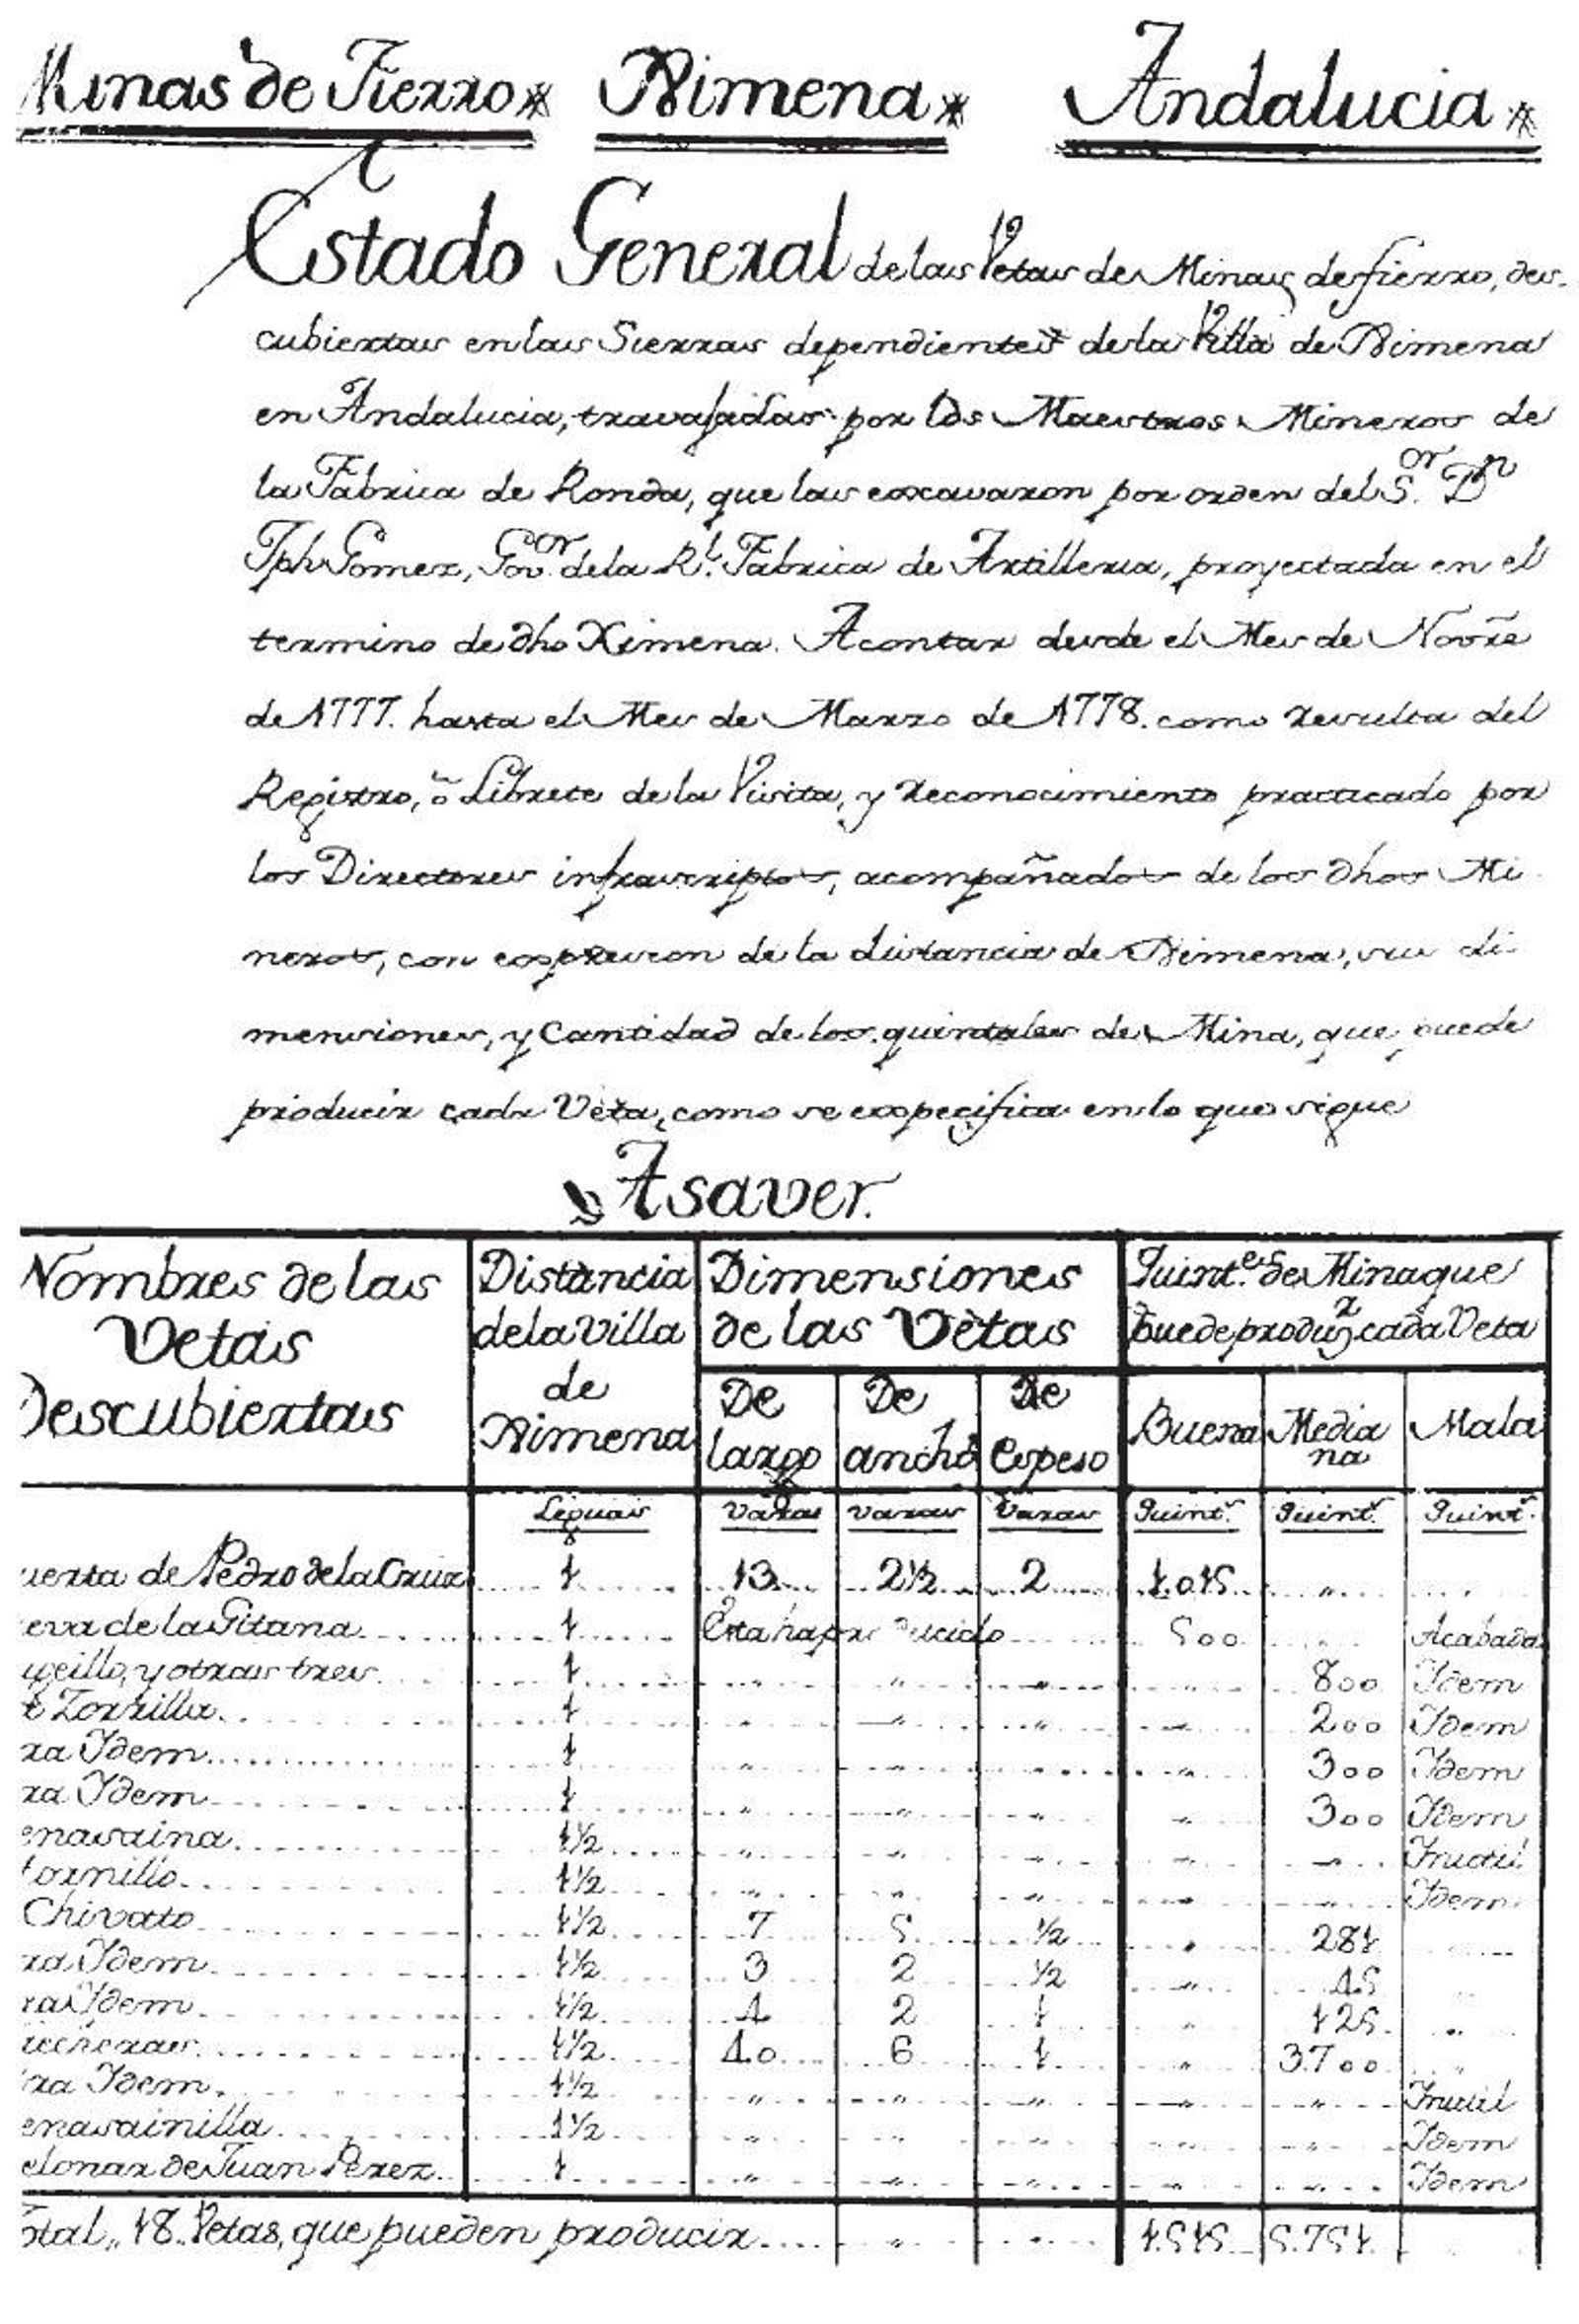 Minas de Fierro Ximena Andalucia
Estado General de las Vetas de Minas de fierro, des-
cubiertas en las Sierras dependientes de la Villa de Ximena
en Andalucia, travajadas por los Maestros Mineros de
la Fabrica de Ronda, que las excavaron por orden del S.or Dn
Jph Gomez, Gov.or de la Rl. Fabrica de Artilleria, proyectada en el
termino de dho Ximena. A contar desde el Mes de Novre
de 1777. hasta el Mes de Marzo de 1778. como resulta del
Registro, ò Librete de la Visita, y reconocimiento practicado por
los Directores infrascriptos, acompañados de los dhos Mi-
neros, con expresion de la distancia de Ximena, sus di-
mensiones, y Cantidad de los quintales de Mina, que puede
producir cada Veta, como se expecifica en lo que sigue
Asaver.
Nombres de las Vetas Descubiertas
Distancia de la Villa de Ximena
Dimensiones de las Vetas
Quint.es de Mina que puede produzir cada Veta
De largo De ancho De Espeso Buena Mediana Mala
Leguas Varas Varas Varas Quint.s Quint.s Quint.s
uerta de Pedro de la Cruz 1 13 2½ 2 1.015 "
eva de la Gitana 1 Esta ha producido 500 Acabada
1 " " " " 800 Idem
Zorrilla 1 " " " " 200 Idem
ra Idem 1 " " " " 300 Idem
ra Idem 1 " " " " 300 Idem
enavaina 1½ " " " " " Inutil
tornillo 1½ " " " " " Idem
Chivato 1½ 7 5 ½ " 281
ra Idem 1½ 3 2 ½ " 45 "
ra Idem 1½ 4 2 1 " 125 "
1½ 40 6 1 " 3.700 "
ra Idem 1½ " " " " " Inutil
enavainilla 1½ " " " " " Idem
elonar de Juan Perez 1 " " " " " Idem
otal, 18. Vetas, que pueden producir " " 1.515 5.751